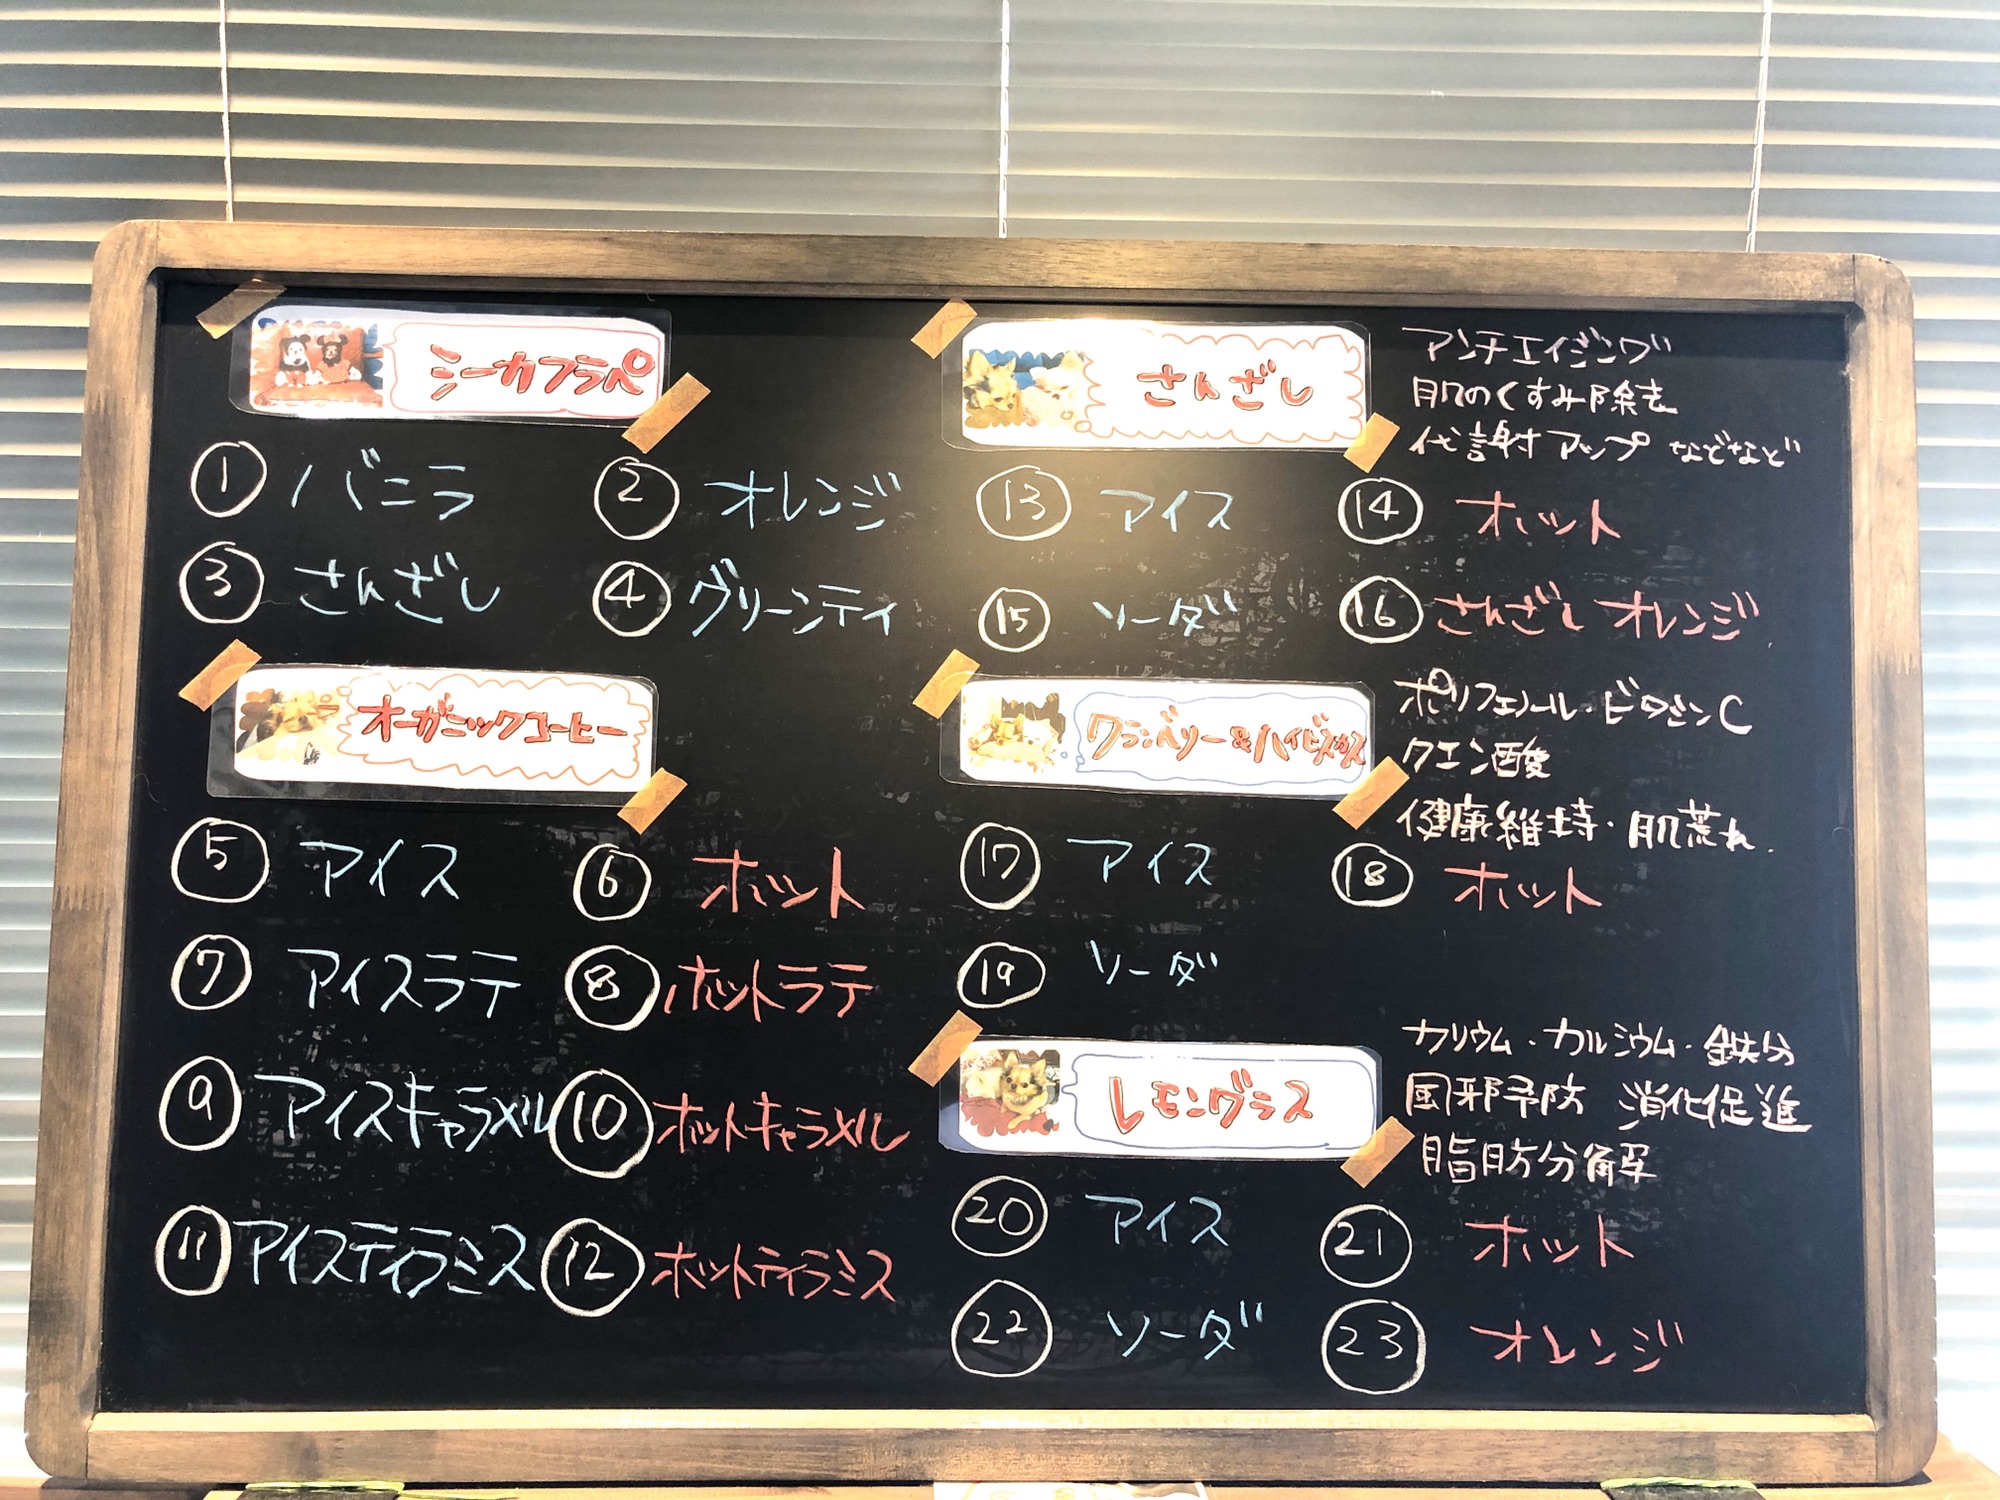 シーカフラペ
① バニラ ② オレンジ
③ さんざし ④ グリーンティ
オーガニックコーヒー
⑤ アイス ⑥ ホット
⑦ アイスラテ ⑧ ホットラテ
⑨ アイスキャラメル ⑩ ホットキャラメル
⑪ アイスティラミス ⑫ ホットティラミス
さんざし
アンチエイジング
肌のくすみ除去
代謝アップ などなど
⑬ アイス ⑭ ホット
⑮ ソーダ ⑯ さんざしオレンジ
クランベリー&ハイビスカス
ポリフェノール・ビタミンC
クエン酸
健康維持・肌荒れ
⑰ アイス ⑱ ホット
⑲ ソーダ
レモングラス
カリウム・カルシウム・鉄分
風邪予防 消化促進
脂肪分解
⑳ アイス ㉑ ホット
㉒ ソーダ ㉓ オレンジ